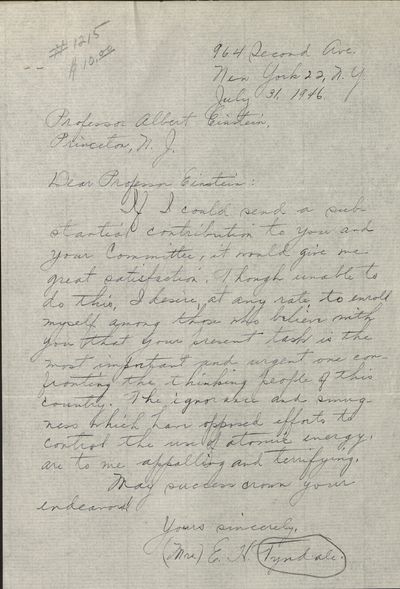 # 1215
$ 10.00
964 Second Ave.
New York 22, N. Y.
July 31, 1946.
Professor Albert Einstein,
Princeton, N. J.
Dear Professor Einstein:
If I could send a sub-
stantial contribution to you and
your Committee, it would give me
great satisfaction. Though unable to
do this, I desire, at any rate, to enroll
myself among those who believe with
you that your present task is the
most important and urgent one con-
fronting the thinking people of this
country. The ignorance and smug-
ness which have opposed efforts to
control the use of atomic energy,
are to me appalling and terrifying.
May success crown your
endeavors!
Yours sincerely,
(Mrs.) E. H. Tyndale.